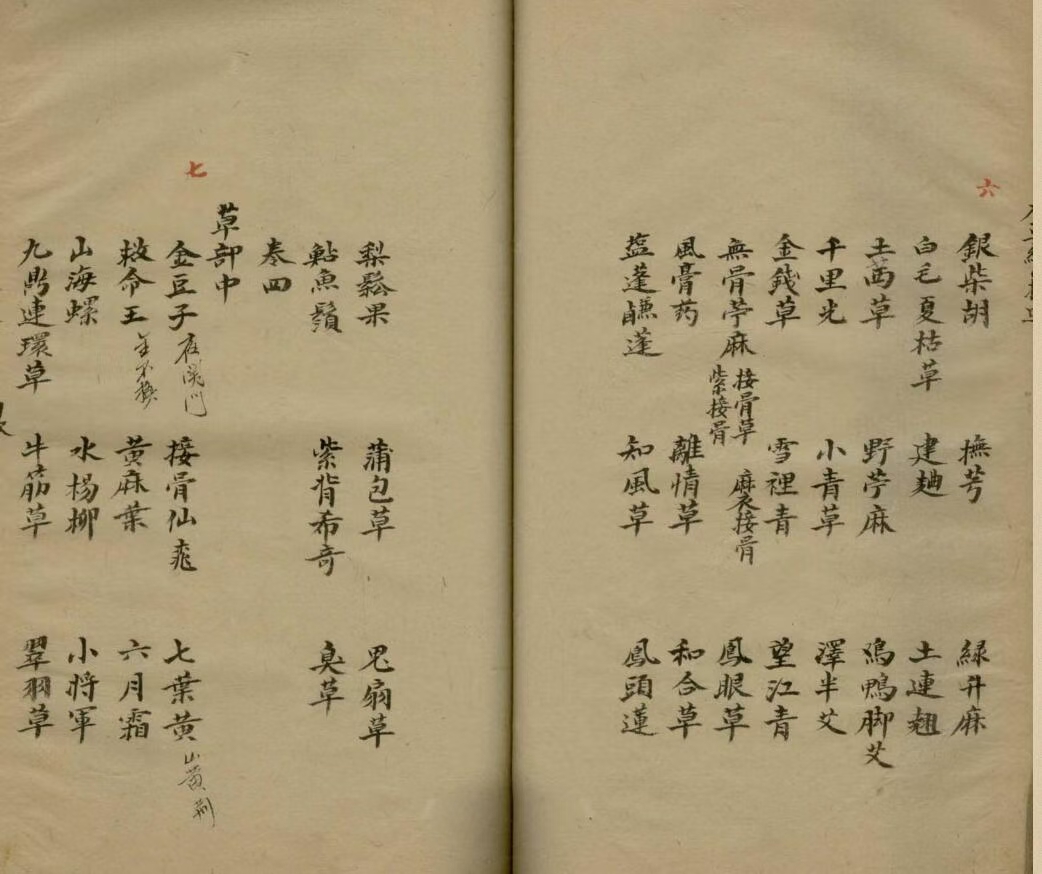 六
銀柴胡 撫芎 綠升麻
白毛夏枯草 建麯 土連翹
土茜草 野苧麻 鴻鴨脚艾
千里光 小青草 澤半艾
金錢草 雪裡青 望江青
無骨苧麻 接骨草 紫接骨 麻衣接骨 鳳眼草
風膏药 離情草 和合草
塩蓬䶢蓬 知風草 鳳頭蓮
梨鬆果 蒲包草 鬼扇草
鮎魚鬚 紫背希奇 臭草
卷四
草部中
七
金豆子 夜関门 接骨仙桃 七葉黄 山黄荊
救命王 金不換 黄麻葉 六月霜
山海螺 水楊柳 小將軍
九鼎連環草 牛筋草 翠羽草